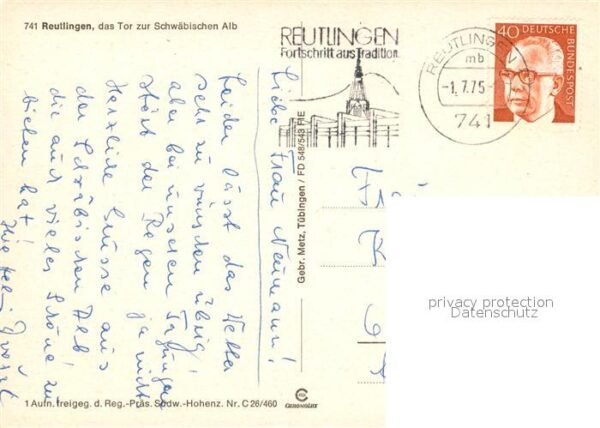 741 Reutlingen, das Tor zur Schwäbischen Alb
REUTLINGEN
Fortschritt aus Tradition
REUTLINGEN 1
mb
-1.7.75-
741
40 DEUTSCHE
BUNDESPOST
Liebe Frau Neumann!
Leider lässt das Wetter
sehr zu wünschen übrig,
aber bei unseren Tagungen
stört der Regen ja nicht.
Herzliche Grüsse aus
der Schwäbischen Alb
die auch vieles Schöne zu
bieten hat!
Gebr. Metz, Tübingen / FD 548/543 RIE
privacy protection
Datenschutz
1 Aufn. freigeg. d. Reg.-Präs. Südw.-Hohenz. Nr. C 26/460